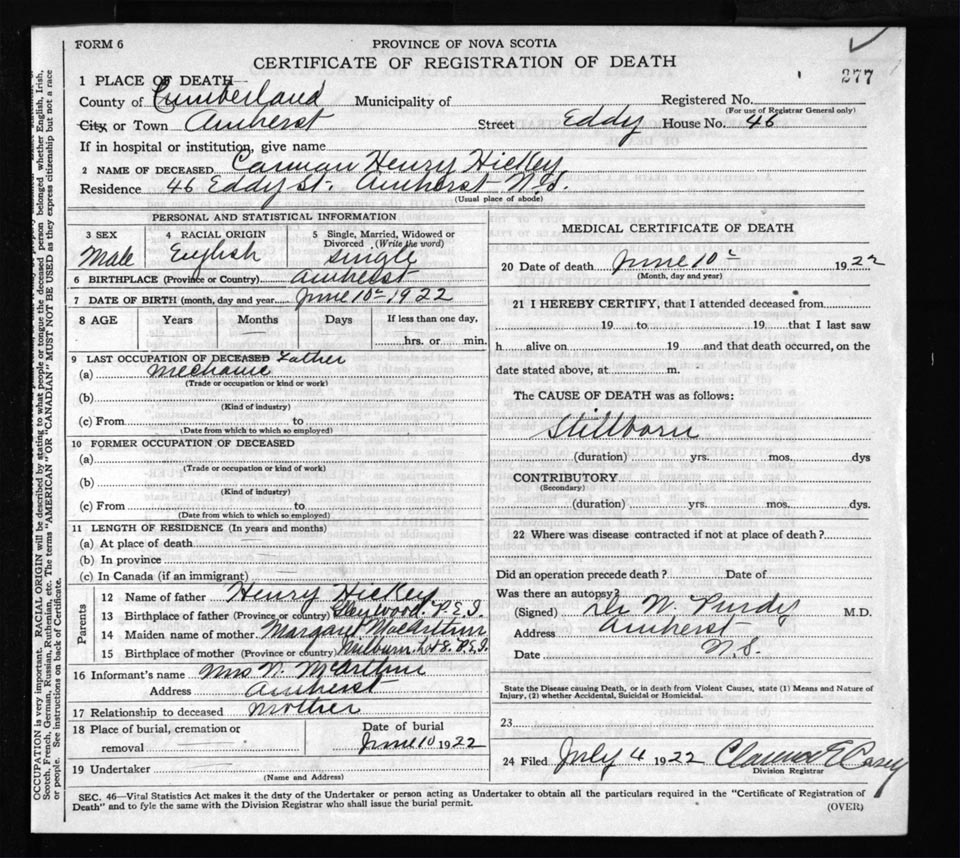 FORM 6
PROVINCE OF NOVA SCOTIA
CERTIFICATE OF REGISTRATION OF DEATH
277
1 PLACE OF DEATH
County of Cumberland Municipality of Registered No.
(For use of Registrar General only)
City or Town Amherst Street Eddy House No. 46
If in hospital or institution, give name
2 NAME OF DECEASED Carman Henry Hickey
Residence 46 Eddy St. Amherst N.S.
(Usual place of abode)
PERSONAL AND STATISTICAL INFORMATION
3 SEX 4 RACIAL ORIGIN 5 Single, Married, Widowed or Divorced (Write the word)
Male English Single
6 BIRTHPLACE (Province or Country) Amherst
7 DATE OF BIRTH (month, day and year) June 10th 1922
8 AGE Years Months Days If less than one day,
hrs. or min.
9 LAST OCCUPATION OF DECEASED Father
(a) Mechanic
(Trade or occupation or kind or work)
(b)
(Kind of industry)
(c) From to
(Date from which to which so employed)
10 FORMER OCCUPATION OF DECEASED
(a)
(Trade or occupation or kind or work)
(b)
(Kind of industry)
(c) From to
(Date from which to which so employed)
11 LENGTH OF RESIDENCE (In years and months)
(a) At place of death
(b) In province
(c) In Canada (if an immigrant)
Parents
12 Name of father Henry Hickey
13 Birthplace of father (Province or country) Glenwood P.E.I.
14 Maiden name of mother Margaret MacArthur
15 Birthplace of mother (Province or country) P.E.I.
16 Informant's name Mrs McArthur
Address Amherst
17 Relationship to deceased Mother
18 Place of burial, cremation or removal Date of burial
June 10 1922
19 Undertaker
(Name and Address)
MEDICAL CERTIFICATE OF DEATH
20 Date of death June 10th 1922
(Month, day and year)
21 I HEREBY CERTIFY, that I attended deceased from
19 to 19 that I last saw
h alive on 19 and that death occurred, on the
date stated above, at m.
The CAUSE OF DEATH was as follows:
Stillborn
(duration) yrs. mos. dys
CONTRIBUTORY
(Secondary)
(duration) yrs. mos. dys.
22 Where was disease contracted if not at place of death?
Did an operation precede death? Date of
Was there an autopsy?
(Signed) Dr W. Purdy M.D.
Address Amherst
Date N.S.
State the Disease causing Death, or in death from Violent Causes, state (1) Means and Nature of
Injury, (2) whether Accidental, Suicidal or Homicidal.
23
24 Filed July 4 1922 Casey
Division Registrar
SEC. 46—Vital Statistics Act makes it the duty of the Undertaker or person acting as Undertaker to obtain all the particulars required in the "Certificate of Registration of
Death" and to fyle the same with the Division Registrar who shall issue the burial permit. (OVER)
OCCUPATION is very important. RACIAL ORIGIN will be described by stating to what people or tongue the deceased person belonged whether English, Irish,
Scotch, French, German, Russian, Ruthenian, etc. The terms "AMERICAN" OR "CANADIAN" MUST NOT BE USED as they express citizenship but not a race
or people. See instructions on back of Certificate.